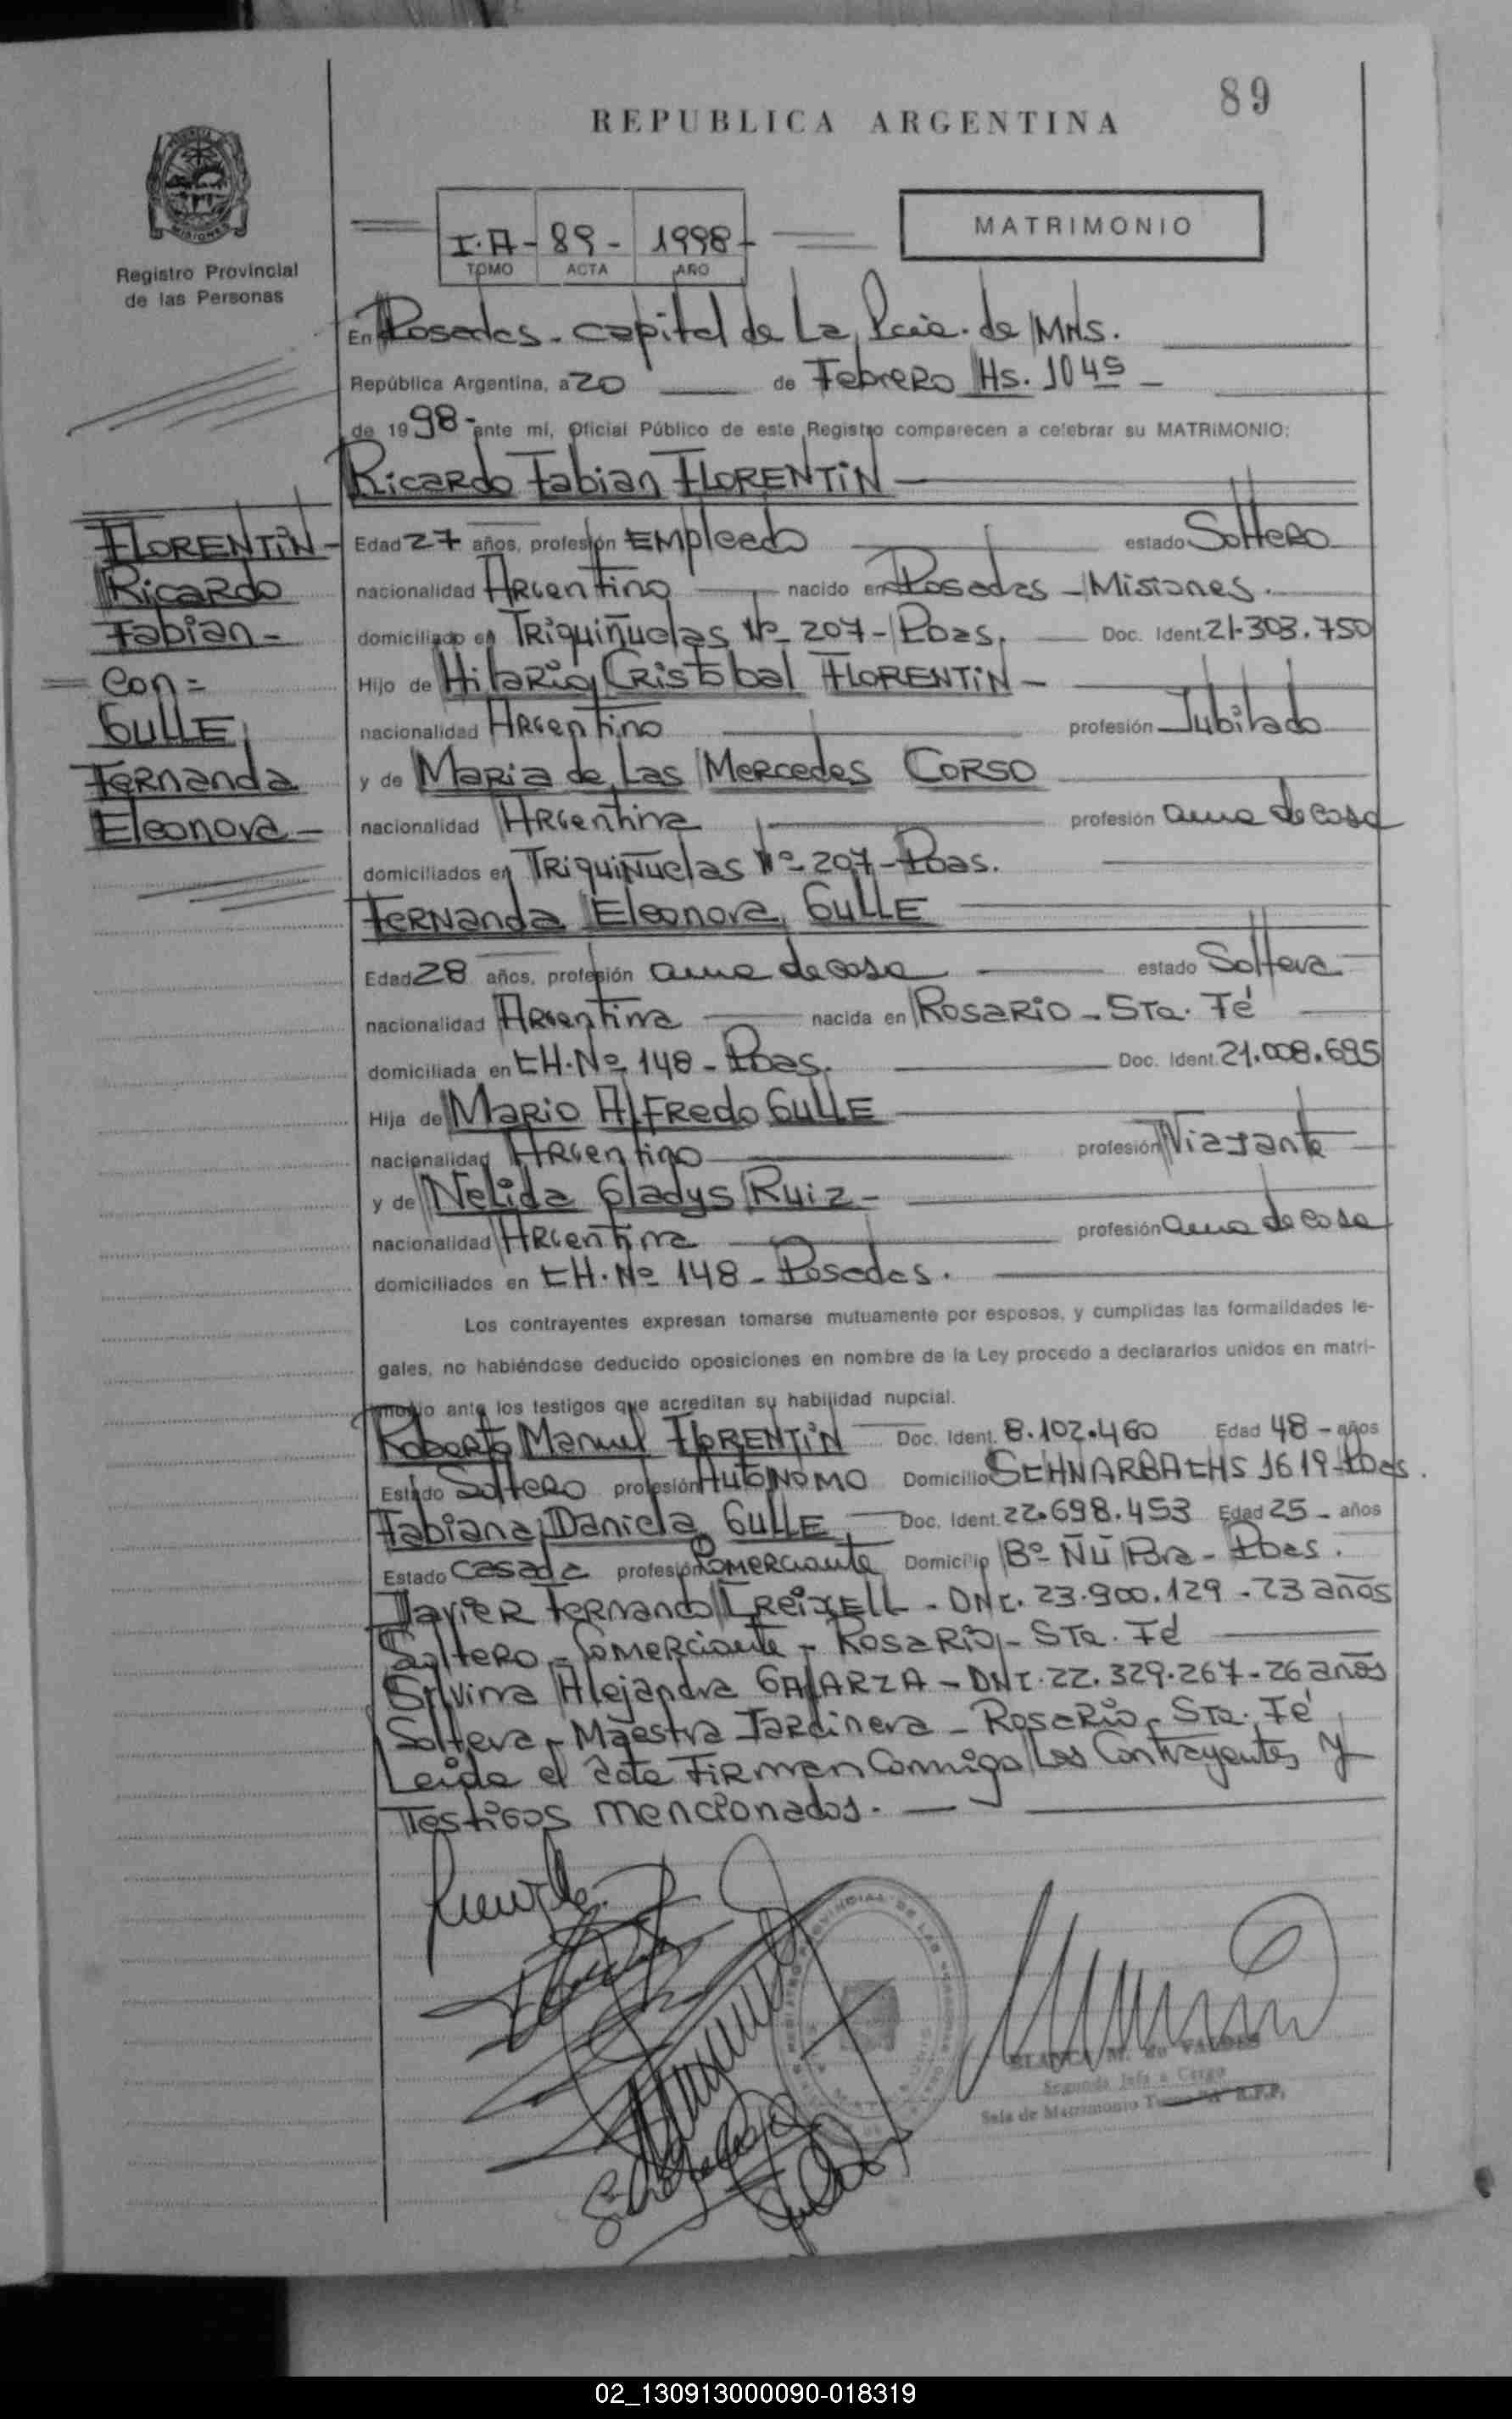 89
REPUBLICA ARGENTINA
MATRIMONIO
I·A- 89- 1998-
TOMO ACTA AÑO
Registro Provincial
de las Personas
En Posadas - capital de La Pcia. de MNS.
República Argentina, a 20 de Febrero Hs. 10 45
de 1998- ante mí, Oficial Público de este Registro comparecen a celebrar su MATRIMONIO:
Ricardo Fabian FLORENTIN
FLORENTIN-
Ricardo
Fabian-
con=
GULLE
Fernanda
Eleonora-
Edad 27 años, profesión Empleado estado Soltero
nacionalidad Argentino nacido en Posadas - Misiones.
domiciliado en Triquiñuelas Nº 207- Pdas. Doc. Ident. 21.303.750
Hijo de Hilario Cristobal FLORENTIN-
nacionalidad Argentino profesión Jubilado
y de Maria de Las Mercedes CORSO
nacionalidad Argentina profesión ama de casa
domiciliados en Triquiñuelas Nº 207- Pdas.
Fernanda Eleonora GULLE
Edad 28 años, profesión ama de casa estado Soltera
nacionalidad Argentina nacida en Rosario - Sta. Fé
domiciliada en CH. Nº 148 - Pdas. Doc. Ident. 21.008.685
Hija de Mario Alfredo GULLE
nacionalidad Argentino profesión Viajante
y de Nelida Gladys Ruiz-
nacionalidad Argentina profesión ama de casa
domiciliados en CH. Nº 148 - Posadas.
Los contrayentes expresan tomarse mutuamente por esposos, y cumplidas las formalidades le-
gales, no habiéndose deducido oposiciones en nombre de la Ley procedo a declararlos unidos en matri-
monio ante los testigos que acreditan su habilidad nupcial.
Roberto Manuel FLORENTIN Doc. Ident. 8.102.460 Edad 48 - años
Estado Soltero profesión AUTONOMO Domicilio 1619 - Pdas.
Fabiana Daniela GULLE Doc. Ident. 22.698.453 Edad 25 - años
Estado Casada profesión Comerciante Domicilio Bº Ñu Pora - Pdas.
Javier Fernando FREIXELL - DNI. 23.900.129 - 23 años
Soltero - Comerciante - Rosario - Sta. Fé
Silvina Alejandra GALARZA - DNI. 22.329.267 - 26 años
Soltera - Maestra Jardinera - Rosario - Sta. Fé
Leida el acta Firman Conmigo Los Contrayentes y
Testigos mencionados.
BLANCA M. de VALDES
Segunda Jefa a Cargo
Sala de Matrimonio R.P.P.
02_130913000090-018319